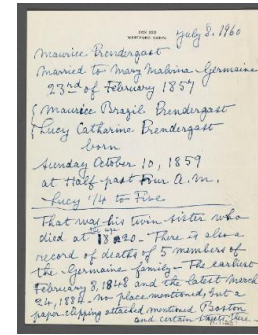 BOX 253
WESTPORT, CONN.
July 8. 1960
Maurice Prendergast
Married to Mary Malvina Germaine
23rd of February 1857
{ Maurice Brazil Prendergast
{ Lucy Catharine Prendergast
born
Sunday October 10, 1859
at Half-past Four A.M.
Lucy 1/4 to Five
That was his twin-sister who
died at the age 18 20 - There is also a
record of deaths of 5 members of
the Germaine family - The earliest
February 8, 1848 and the latest March
24, 1884. no place mentioned, but a
paper clipping attached mentioned Boston
and certain